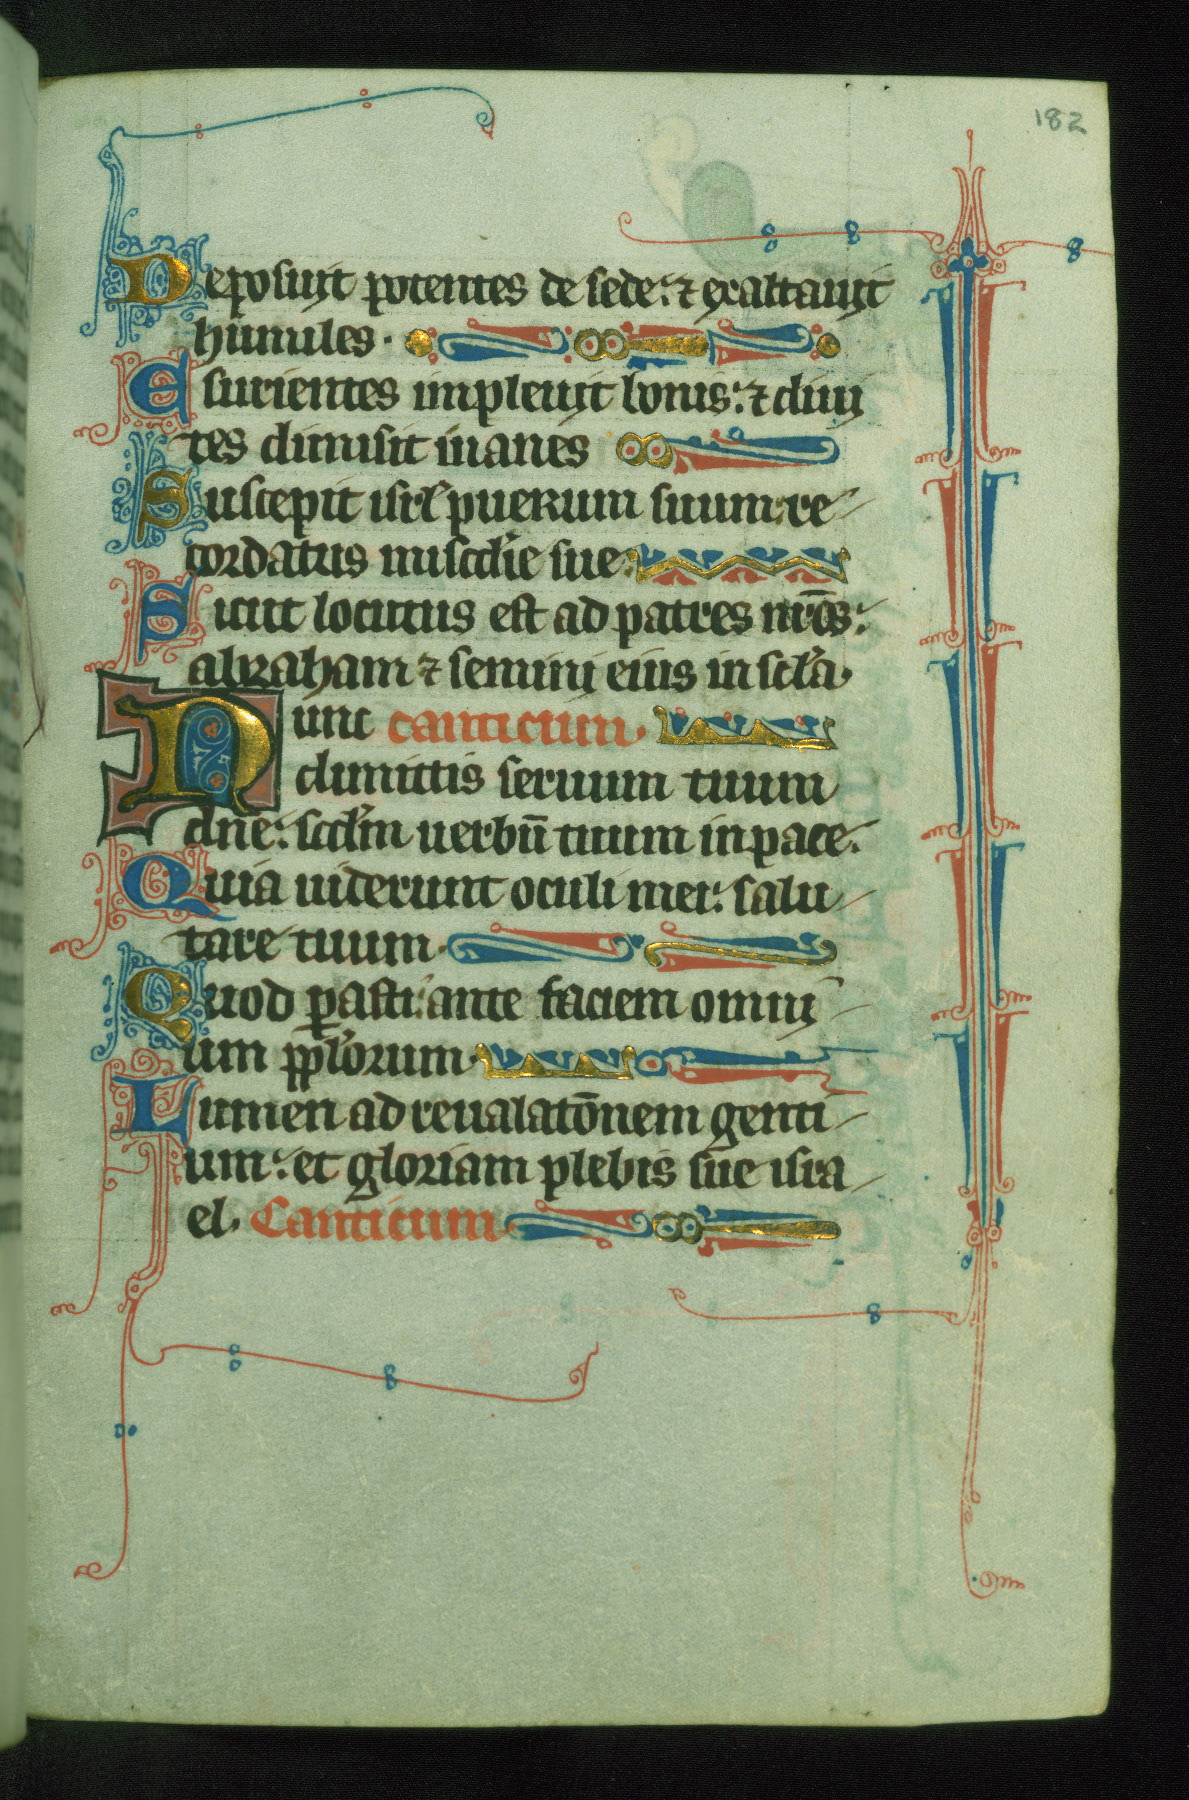 182
Deposuit potentes de sede: ⁊ exaltauit
humiles.
Esurientes impleuit bonis: ⁊ diui
tes dimisit inanes
Suscepit isrl̄ puerum suum: re
cordatus mis̄c̄die sue:
Sicut locutus est ad patres nr̄os:
abraham ⁊ semini eius in sc̄l̄a.
Nunc canticum.
dimittis seruum tuum
dn̄e: sc̄d̄m uerbū tuum in pace.
Quia uiderunt oculi mei: salu
tare tuum.
Quod ꝑasti: ante faciem omni
um pp̄l̄orum.
Lumen ad reualatōnem genti
um: et gloriam plebis sue isra
el. Canticum